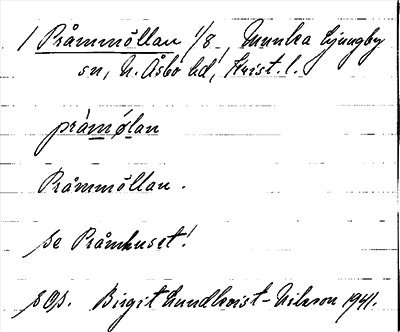 1 Pråmmöllan 1/8, Munka Ljungby
sn, N. Åsbo hd, Krist. l.
pràmø̀lan
Pråmmöllan.
se Pråmhuset!
s Os. Birgit Lundkvist-Nilsson 1941.